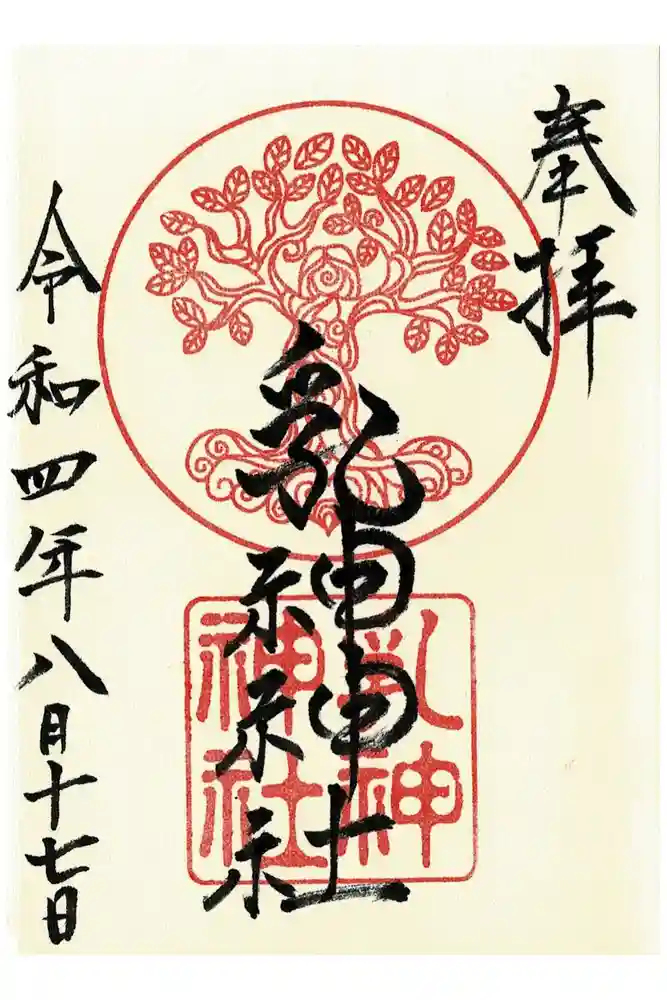 奉拝
乳神神社
乳神神社
令和四年八月十七日